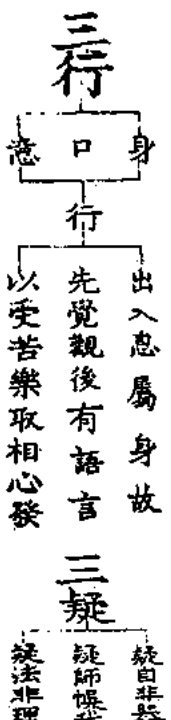 三行
身
口
意
行
出入息屬身故
先覺觀後有語言
以受苦樂取相心發
三疑
疑自非器
疑師悞我
疑法非理